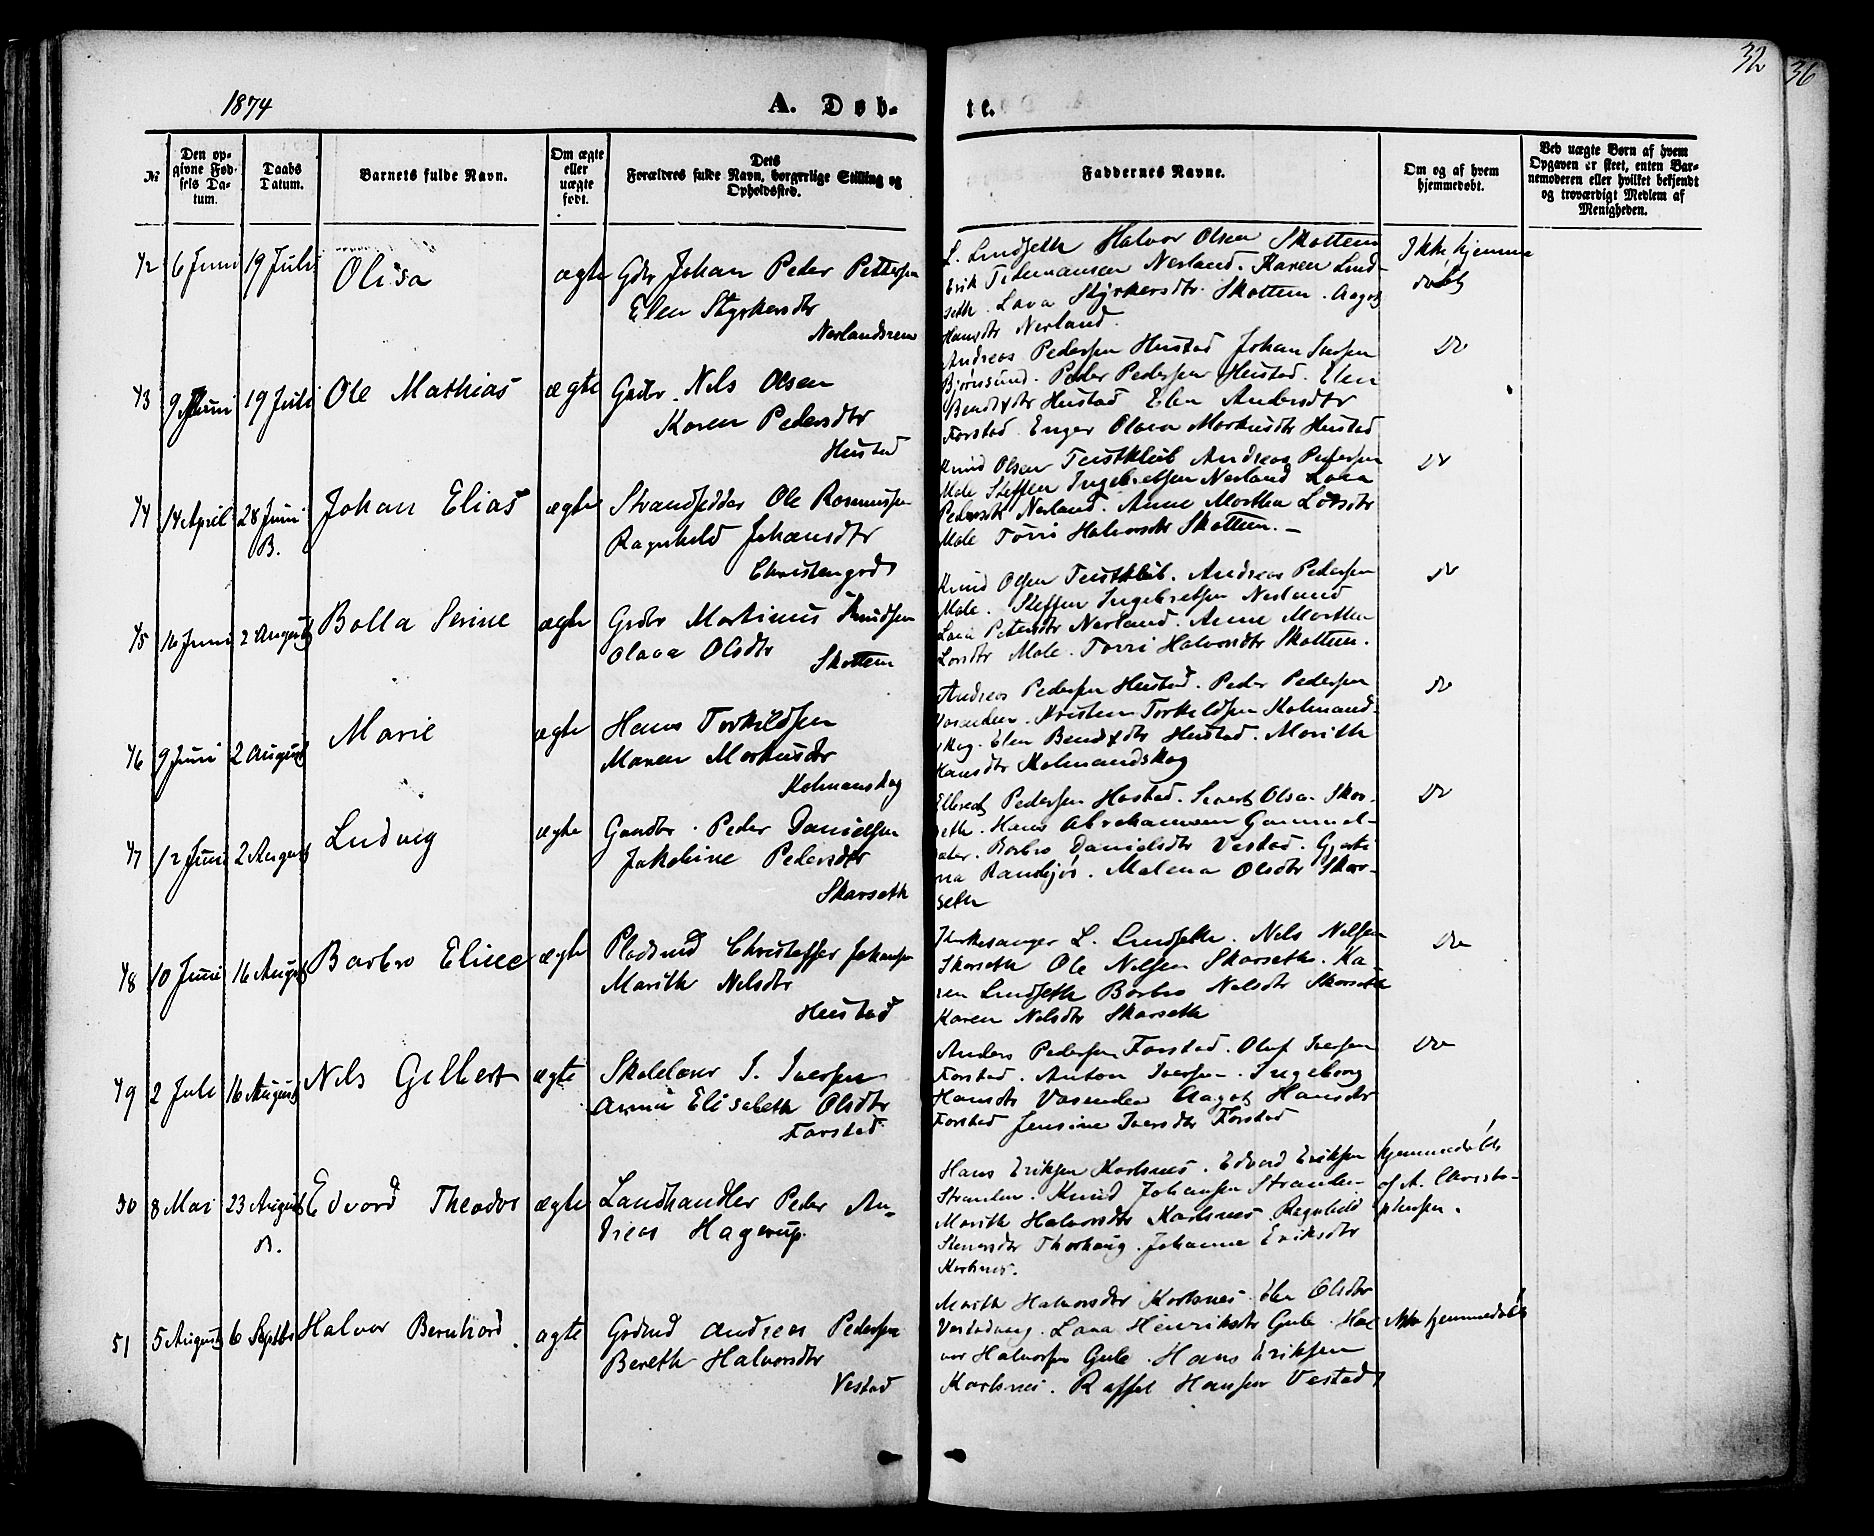 32
36
1874
A. Døb-
te.
Nr
Den opgivne Fødsels Datum.
Daabs Datum.
Barnets fulde Navn.
Om ægte eller uægte født.
Dets Forældres fulde Navn, borgerlige Stilling og Opholdssted.
Faddernes Navne.
Om og af hvem hjemmedøbt.
Ved uægte Børn af hvem Opgaven er skeet, enten Barnemoderen eller hvilket bekjendt og troværdigt Medlem af Menigheden.
42 6 Juni 19 Juli Olisa ægte Gdbr Johan Peder Pettersen
Elen Styrkersdtr
Nerlandsrem
L. Lindseth Halvor Olsen Skottem
Erik Nerland. Karen Lind-
seth. Lava Styrkersdtr Skottem. Aagot
Hansdtr Nerland.
Ikke hjemme
døbt
43 9 Juni 19 Juli Ole Mathias ægte Grdbr. Nils Olsen
Karen Pedersdtr
Hustad
Andreas Pedersen Hustad Johan
Bjørnsund. Peder Pedersen Hustad. Elen
Hustad Elen Andersdtr
Farstad Inger Olava Markusdtr Hustad
Do
44 14 April 28 Juni
B.
Johan Elias ægte Strandsidder Ole Rasmussen
Ragnhild Johansdtr
Christengods
Knud Olsen Tustklub Andreas Pedersen
Male Steffen Ingebretsen Nerland Lava
Pedersdtr Nerland. Anne Marthe Larsdtr
Male Torri Halvorsdtr Skottem. —
Do
45 16 Juni 2 August Bolla Serine ægte Grdbr Martinus Knudsen
Olava Olsdtr
Skottem
Knud Olsen Tustklub. Andreas Pedersen
Male. Steffen Ingebretsen Nerland
Lava Petersdtr Nerland. Anne Marthe
Larsdtr Male. Torri Halvorsdtr Skottem.
Do
46 9 Juni 2 August Marie ægte Hans Torkildsen
Maren Markusdtr
Kolmanskog
Andreas Pedersen Hustad. Peder Pedersen
Vasenden. Kristen Torkildsen Kolmand-
skog. Elen Hustad. Marith
Hansdtr Kolmandskog
Do
47 12 Juni 2 August Ludvig ægte Gaardbr. Peder Danielsen
Jakobine Pedersdtr
Skarseth
Pedersen Hostad. Sivert Olsen Skar-
seth. Hans Abrahamsen Gammel-
sæter. Barbro Danielsdtr Vestad. Gjerti
na Malena Olsdtr Skar-
seth
Do
48 10 Juni 16 August Barbro Eline ægte Pladsmd Christoffer Johansen
Marith Nilsdtr
Hustad
Kirkesanger L. Lindseth. Nels Nelsen
Skarseth Ole Nelsen Skarseth. Ka-
ren Lindseth Barbro Nelsdtr Skarseth
Karen Nelsdtr Skarseth
Do
49 2 Juli 16 August Nils Gilbert ægte Skolelærer I. Iversen
Anne Elisabeth Olsdtr
Farstad
Anders Pedersen Farstad. Oluf Iversen
Farstad. Anton Iversen. Ingeborg
Hansdtr Vasenden Aagot Hansdtr
Farstad Jensine Iversdtr Farstad
Do
50 8 Mai 23 August
B.
Edvard Theodor ægte Landhandler Peder An-
dreas Hagerup.
Hans Eriksen Korsnes. Edvard Eriksen
Stranden. Knud Johansen Stranden
Marith Halvorsdtr Korsnes. Ragnhild
Thorhaug. Johanne Eriksdtr
Korsnes.
hjemmedøbt
af A. Christo-
phersen.
51 5 August 6 Septbr Halvor Bernhard. ægte Grdmd Andreas Pedersen
Bereth Halvorsdtr
Vestad
Marith Halvorsdtr Korsnes. Elen Olsdtr
Lava Henriksdtr Gule. Hal
vor Halvorsen Gule. Hans Eriksen
Korsnes. Raffel Hansen Vestad
Ikke hjemmedøbt